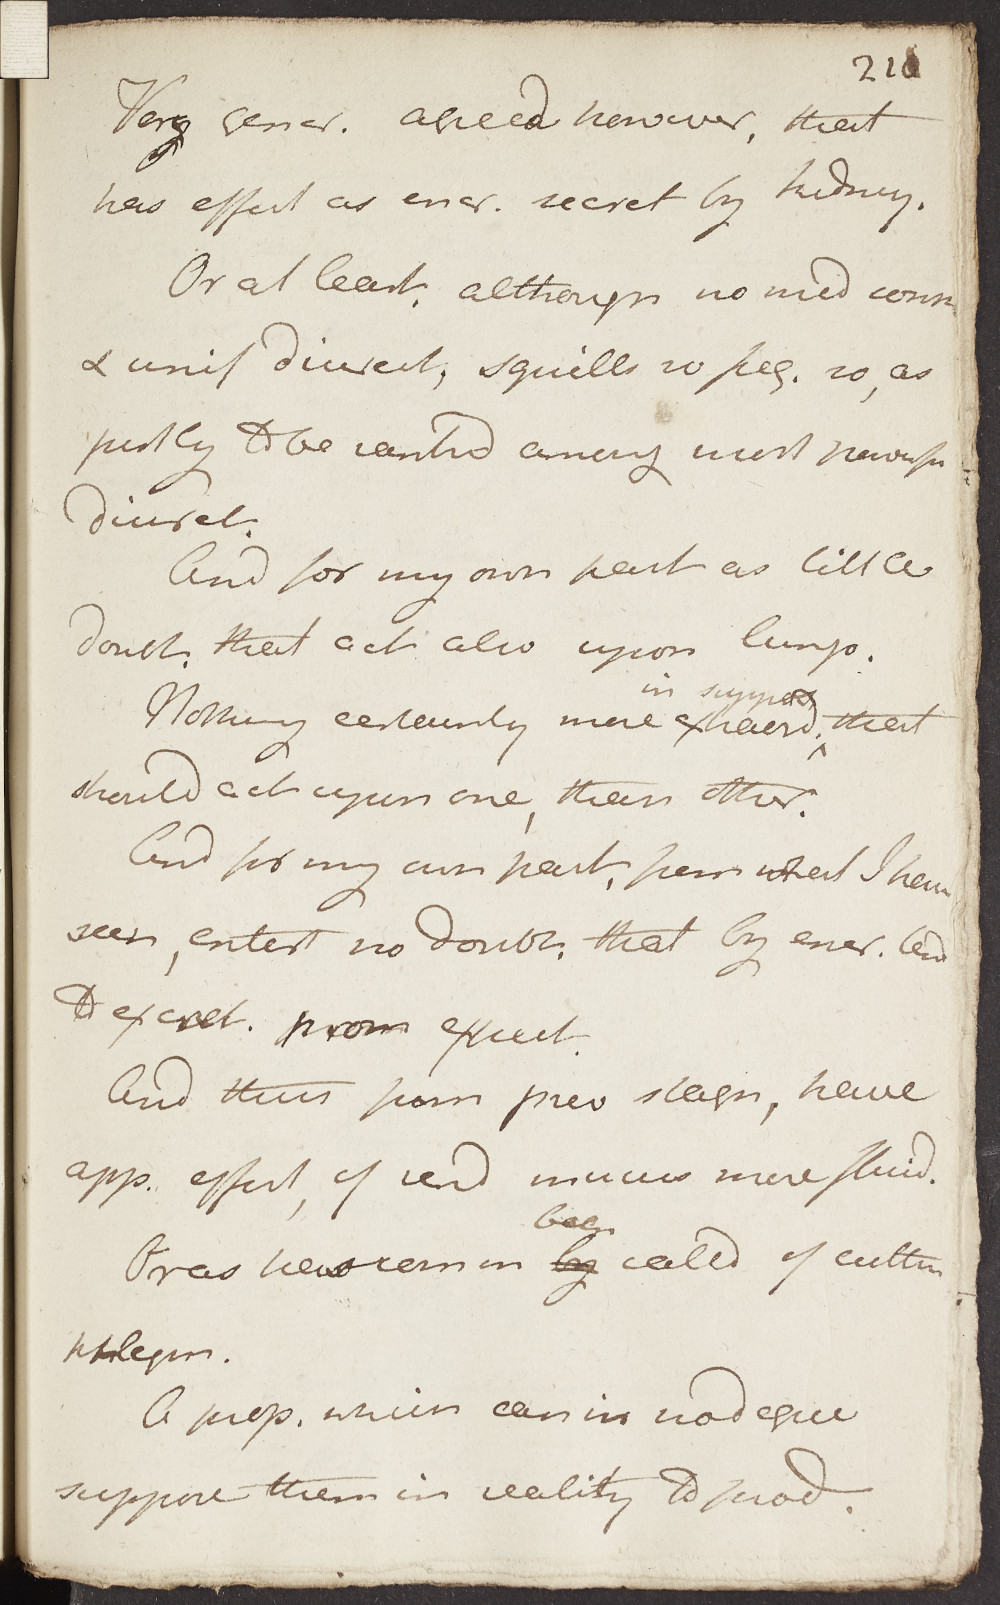 210
Very gener. agreed however, that
has effect as encr. secret by kidney.
Or at least, although no med conn
& unif diuret, squills so freq. so, as
justly to be ranked among most powerfu
diuret.
And for my own part as little
doubt, that act also upon lungs.
in suppos
Nothing certainly more extraord, that
should act upon one, than other.
And for my own part, from what I have
seen, entert no doubt, that by encr. tend
to excret. prom expect.
And thus from prev stagn, have
app. effect, of rend mucus more fluid.
been
Or as has comm by called of cuttin
phlegm.
A prop. which can in no degree
suppose them in reality to prod.